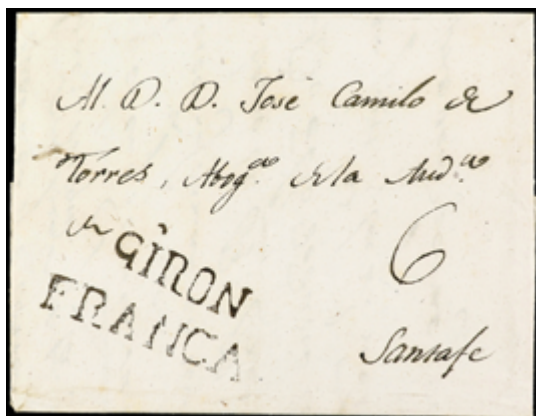 Al. D. D. José Camilo de
Torres, Abogdo. de la Auda.
de
GIRON
FRANCA
6
Santafe